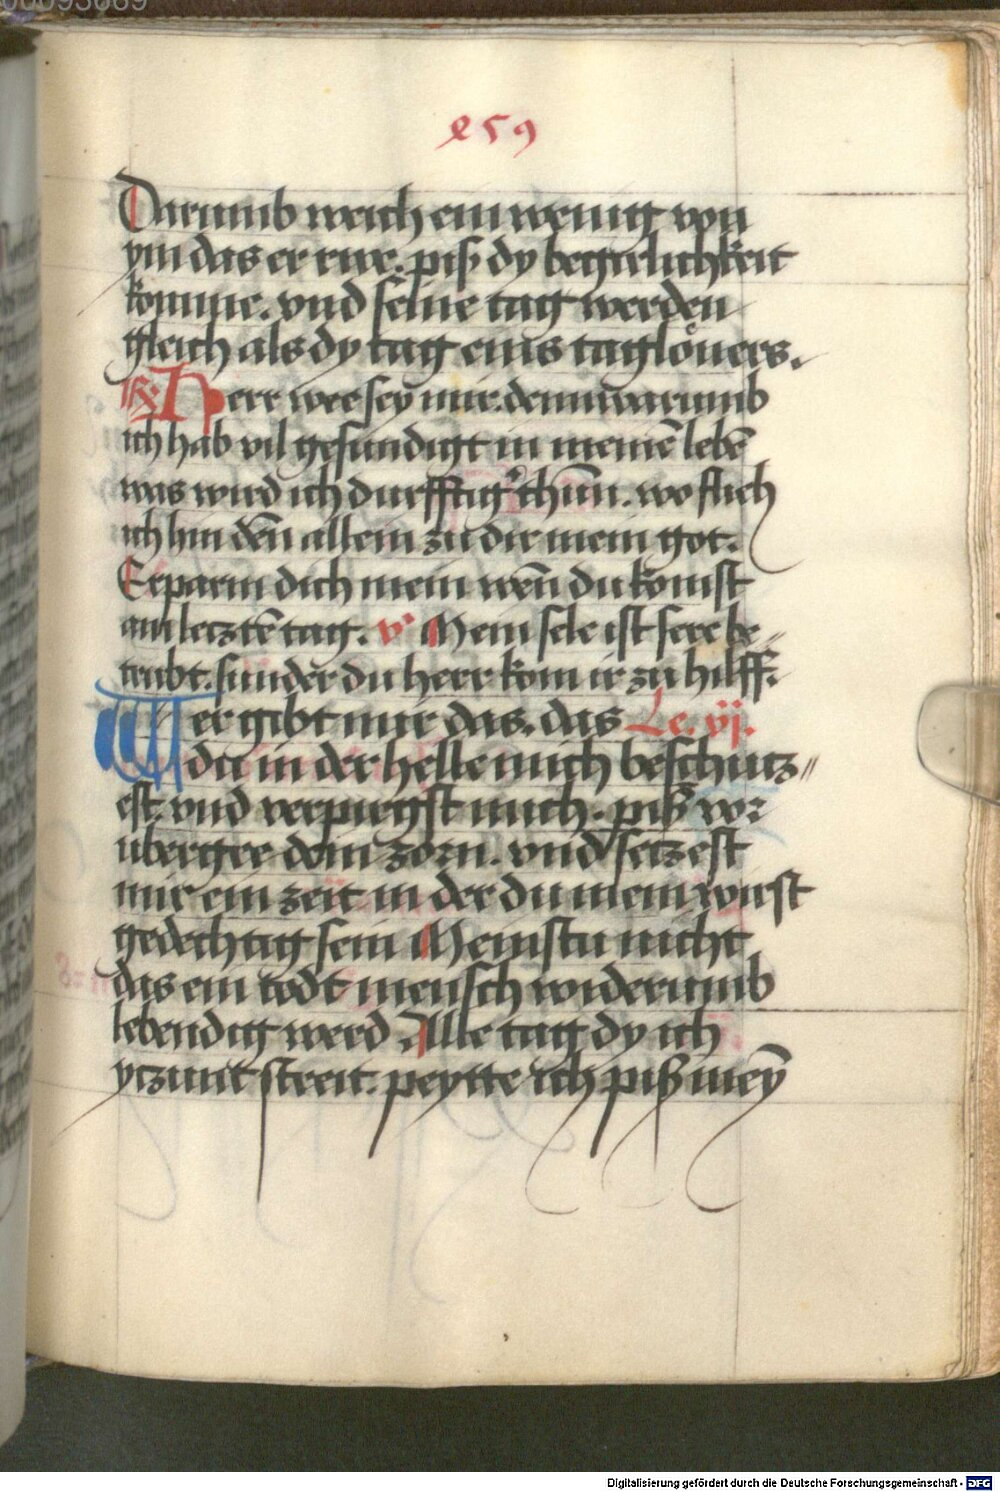 00093669
259
Darumb weich ein wenig von
ym das er rwe. piß dy begirlichkeit
komme. vnd seine tag werden
gleich als dy tag eins taglöners.
R. Herr wee sey mir. denn warumb
ich hab vil gesundigt in meinē lebē
was wird ich durfftig' thun. wo flich
ich hin dēn allein zu dir mein got.
Erparm dich mein wēn du komst
am letztē tag. v' Mein sele ist sere be-
trubt. sunder du herr kom ir zu hilff.
Wer gibt mir das. das Le. vij.
du in der helle mich beschutz-
est. vnd verpirgst mich. piß vor
vbergee dein zorn. vnd setzest
mir ein zeit in der du mein wirst
gedechtig sein Meinstu nicht
das ein todt mensch widerumb
lebendig werd. Alle tag dy ich
yczunt streit. peytte ich piß mey̅
Digitalisierung gefördert durch die Deutsche Forschungsgemeinschaft - DFG